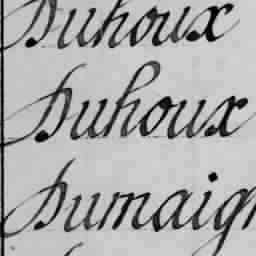 Duhoux
Duhoux
Dumaign